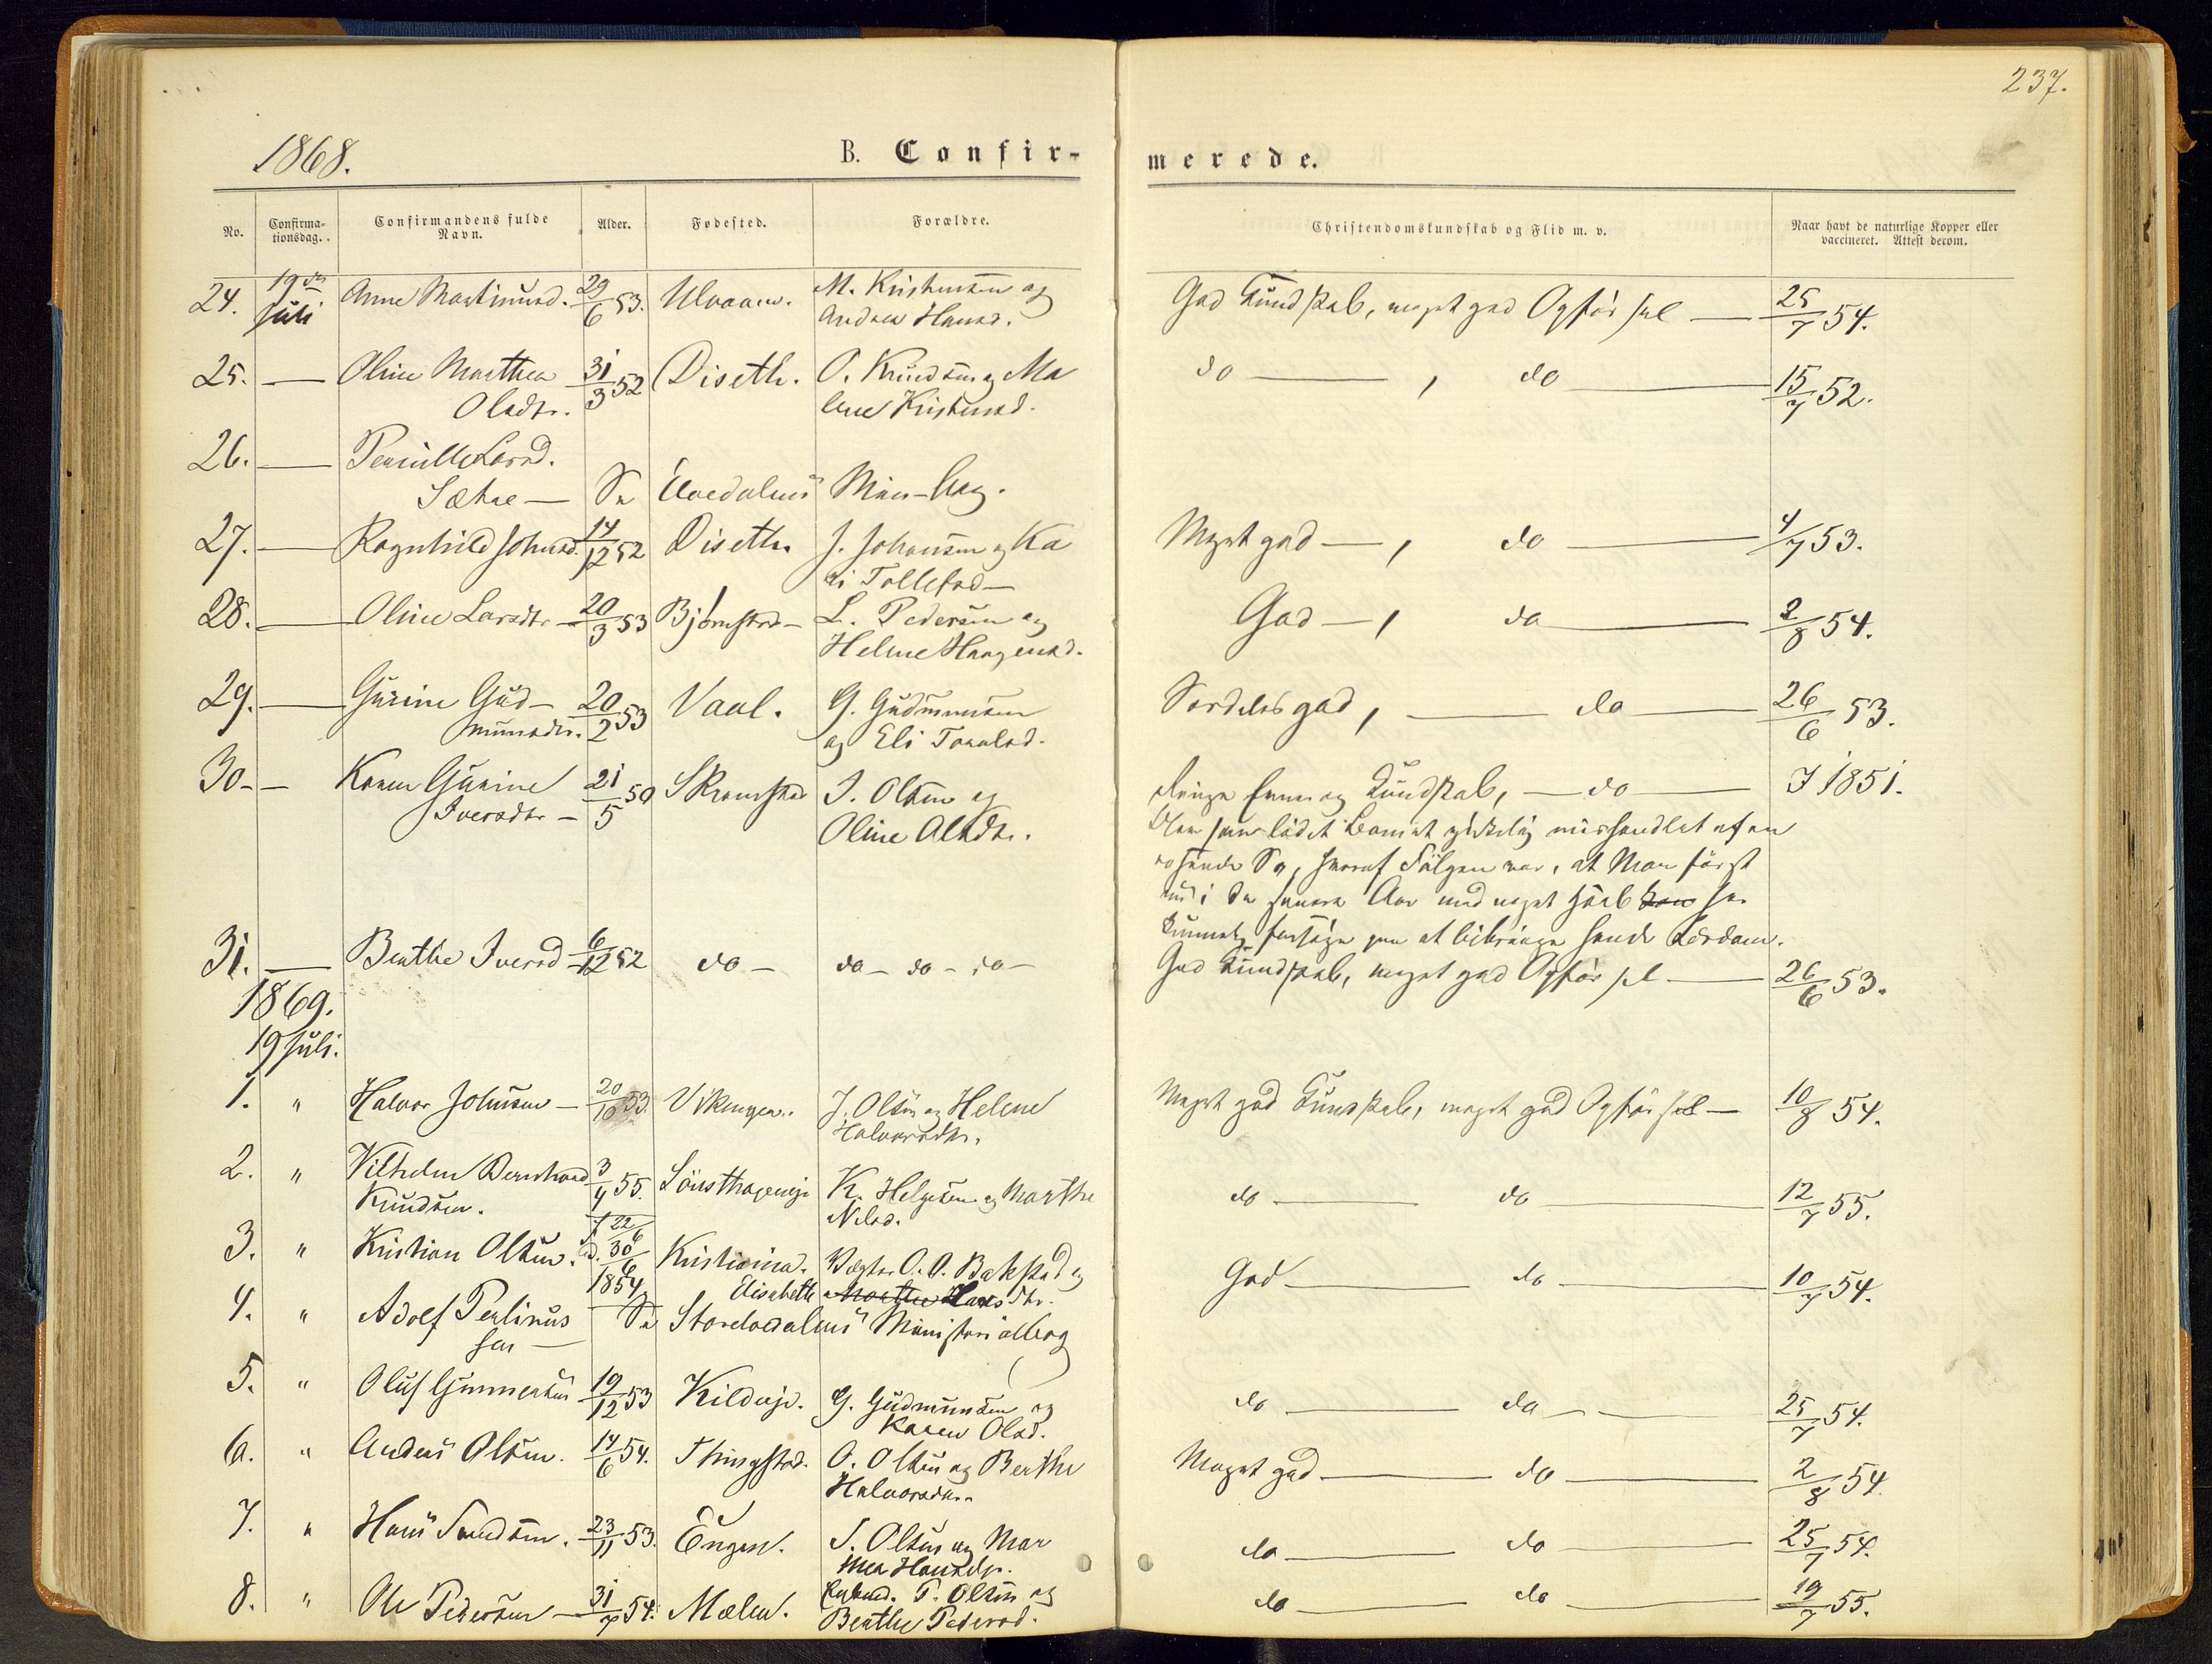 237.
1868.
B. Confir-
merede.
No.
Confirma-
tionsdag.
Confirmandens fulde
Navn.
Alder.
Fødested.
Forældre.
Christendomskundskab og Flid m. v.
Naar havt de naturlige Kopper eller
vaccineret. Attest derom.
24. 19de Juli Anne Martinusd. 29/6 53. Ulvaaen. M. Kristensen og
Andrea Hansd.
God Kundskab, meget god Opførsel — 25/7 54.
25. — Oline Marthea 31/3 52 Diseth. O. Knudsen og Ma
Olsdtr. lene Kristensd.
do — , do — 15/7 52.
26. — Pernille Larsd.
Sætre — Se Elvedalens Min-Bog.
27. — Ragnhild Johnsd. 14/12 52 Diseth. J. Johansen og Ka
ri Tollefsd —
Meget god — , do — 4/7 53.
28. — Oline Larsdtr — 20/3 53 Bjørnstad — L. Pedersen og
Helene Haagensd.
God — , do — 2/8 54.
29. — Gurine Gud- 20/2 53 Vaal. G. Gudmunsen
munsdtr. og Eli Toralsd.
Særdeles god, — do — 26/6 53.
30 — — Karen Gurine 21/5 50 Skramstad I. Olsen og
Iversdtr — Oline Alsdtr.
Ringe Evner og Kundskab, — do — I 1851.
blev som lidet Barn at mishandlet af en
Se, hvoraf Følgen var, at Man først
nu i de senere Aar med noget Haab kan har
kunnet forsøge paa at bibringe hende Lærdom.
31. — Berthe Iversd — 6/12 52 do — do — do — do —
God Kundskab, meget god Opførsel — 26/6 53.
1869.
19 Juli.
1. " Halvor Johnsen — 20/10 53. Vikengen. J. Olsen og Helene
Halvorsdtr.
Meget god Kundskab, meget god Opførsel — 10/8 54.
2. " Vilhelm Bernhard 3/4 55. K. Helgesen og Marthe
Knudsen. Nilsd.
do — do — 12/7 55.
3. " Kristian Olsen. f 22/6 d. 30/6 1854 Kristiania. Vægter O. O. Bakstad og
Elisabeth Marthe Larsdtr.
God — do — 10/7 54.
4. " Adolf Perlinus Se Storelvedalens Ministerialbog
sen —
5. " Oluf Gunnersen 19/12 53 Kildeqv. G. Gudmunsen og
Karen Olsd.
do — do — 25/7 54.
6. " Anders Olsen. 14/6 54. Thingstad. O. Olsen og Berthe
Halvorsdtr.
Meget god — do — 2/8 54
7. " Hans Svendsen. 23/11 53. Engen. S. Olsen og Mar
thea Hansdtr.
do — do — 25/7 54.
8. " Ole Pedersen — 31/7 54. Mælen. P. Olsen og
Berthe Pedersd.
do — do — 19/7 55.